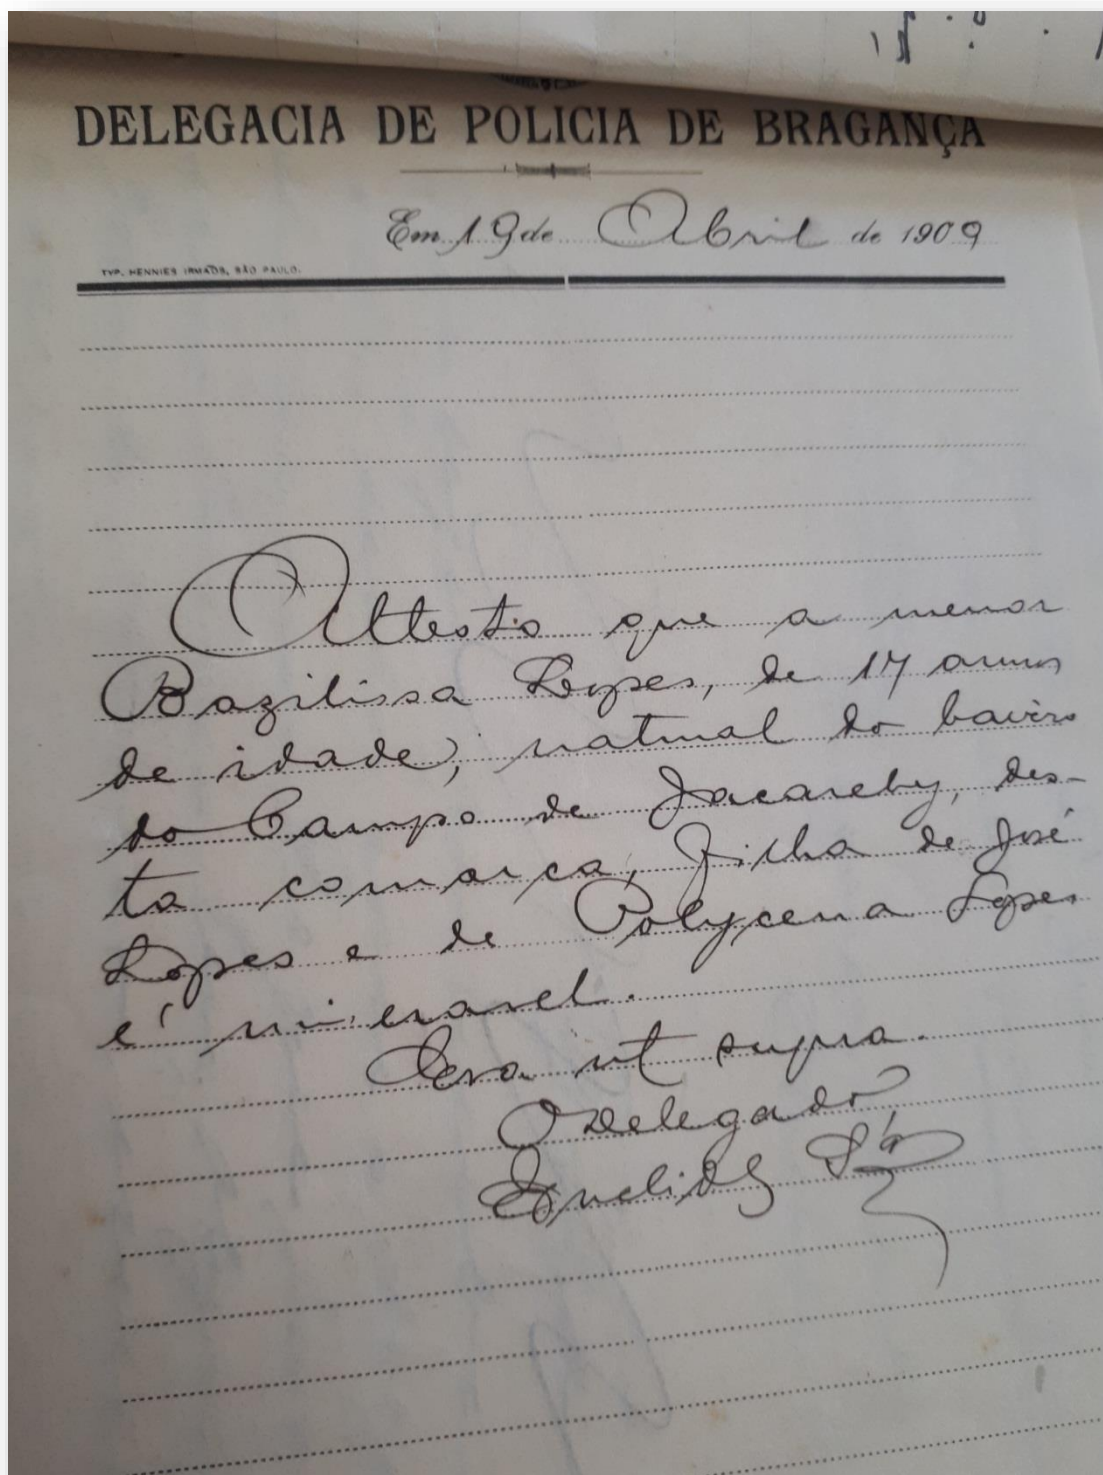 DELEGACIA DE POLICIA DE BRAGANÇA
Em 19 de Abril de 1909
TYP. HENNIES IRMÃOS, SÃO PAULO.
Attesto que a menor
Bazilissa Lopes, de 17 annos
de idade, natural do bairro
do Campo de Jacarehy, des-
ta comarca, filha de José
Lopes e de Polycena Lopes
é miseravel.
Era ut supra.
O Delegado,
Euclides Sá